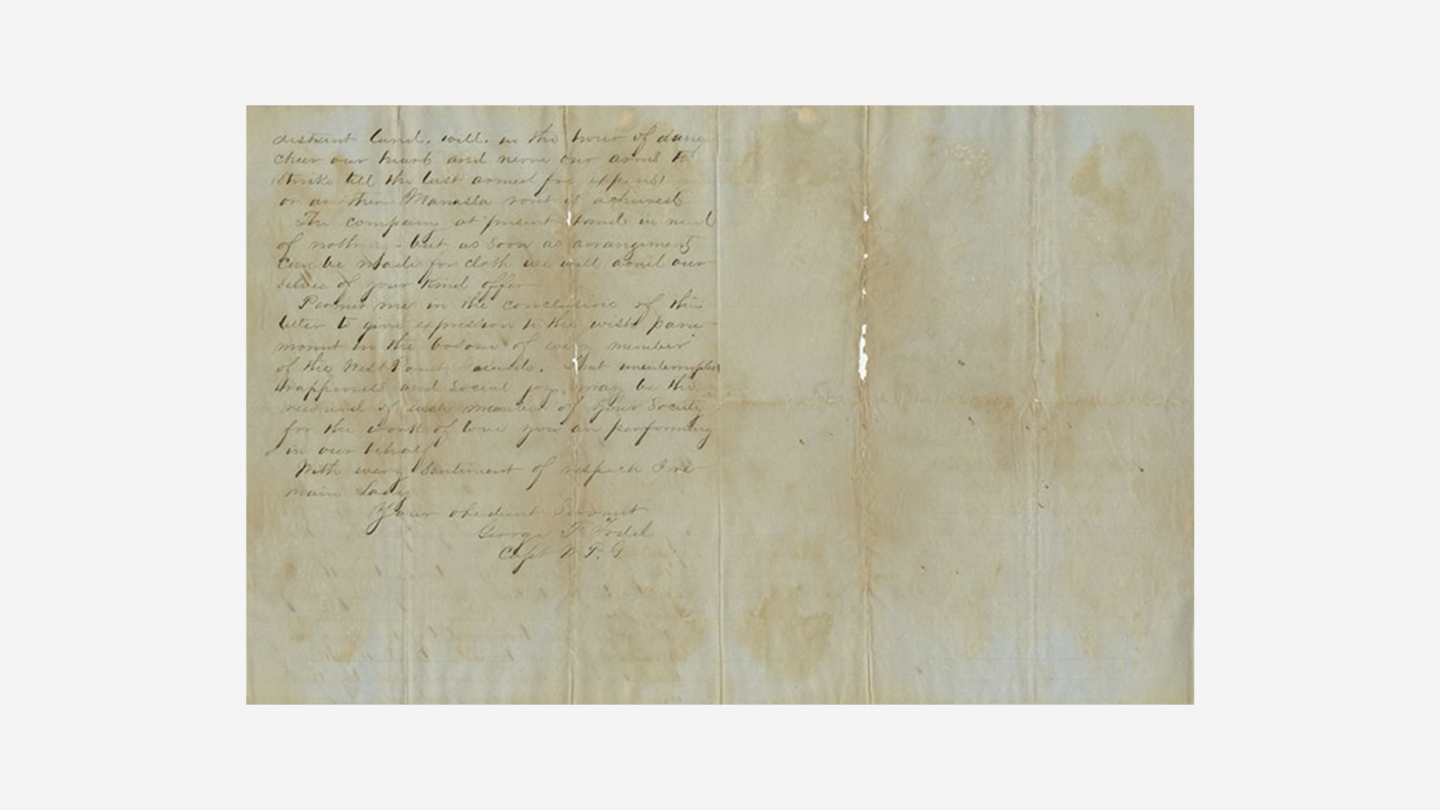 distant land. will. in the hour of dang
cheer our hearts and nerve our arms to
strike till the last armed foe expires!
or another Manassa rout is achieved
The company at present stand in need
of nothing - but as soon as arrangement
can be made for cloth we will avail our
selves of your kind offer
Permit me in the conclusion of this
letter to give expression to the wish para
mount in the bosom of every member
of the West Point Guards. That uninterrupted
happiness and social joy, may be the
reward of each member of your Society
for the work of love you are performing
in our behalf
With every Sentiment of respect I re
main Lady
Your obedient Servant
George F. Todd
Capt W. P. G.